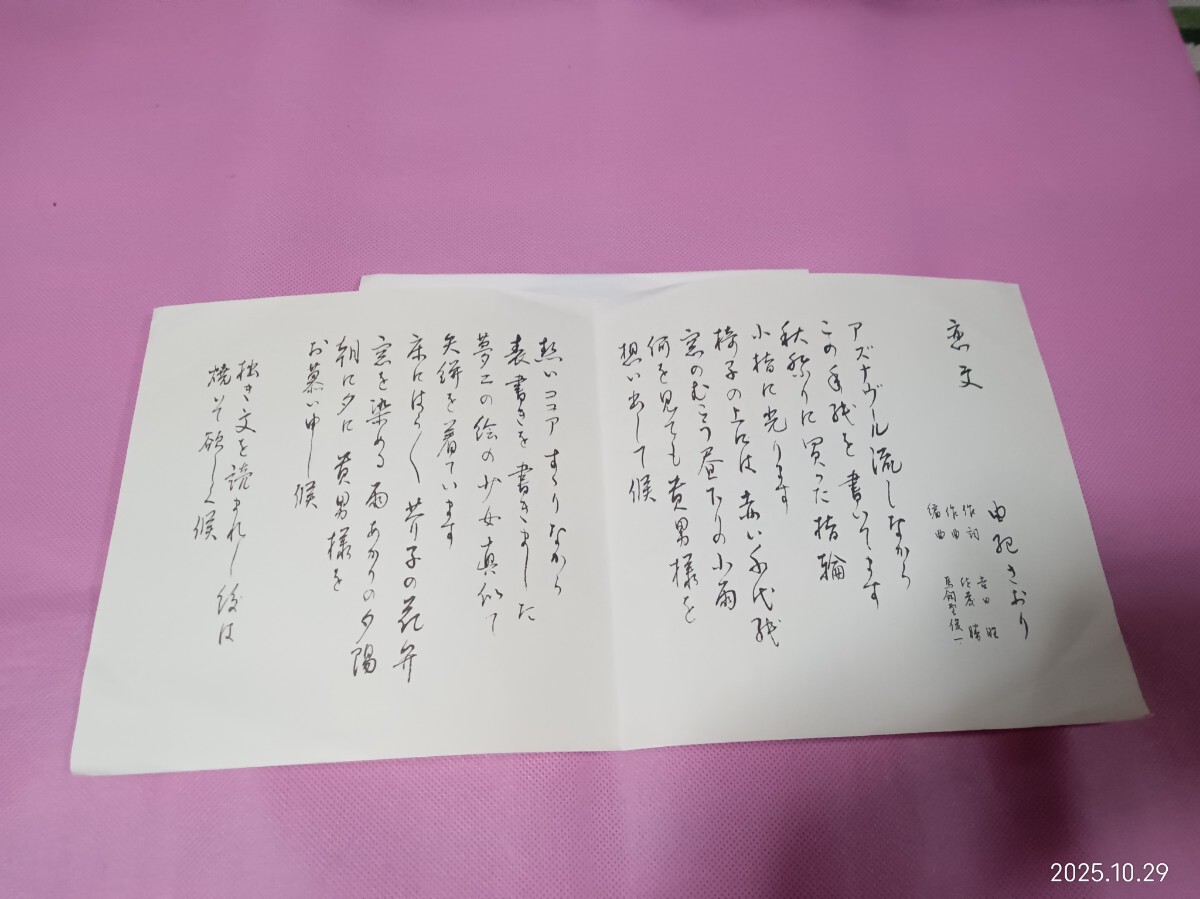 恋文
由紀さおり
作詞 吉田旺
作曲 佐藤勝
編曲 馬飼野俊一
アズナヴール流しながら
この手紙を書いてます
秋祭りに買った指輪
小指に光ります
椅子の上には 赤い千代紙
窓のむこう 昼下りの小雨
何を見ても貴男様を
想い出して候
熱いココア すゝりながら
表書きを書きました
夢二の絵の少女真似て
矢絣を着ています
床にはらはら 芥子の花弁
窓を染める 雨あがりの夕陽
朝に夕に 貴男様を
お慕い申し候
拙き文を読まれし後は
焼いて欲しく候
2025.10.29